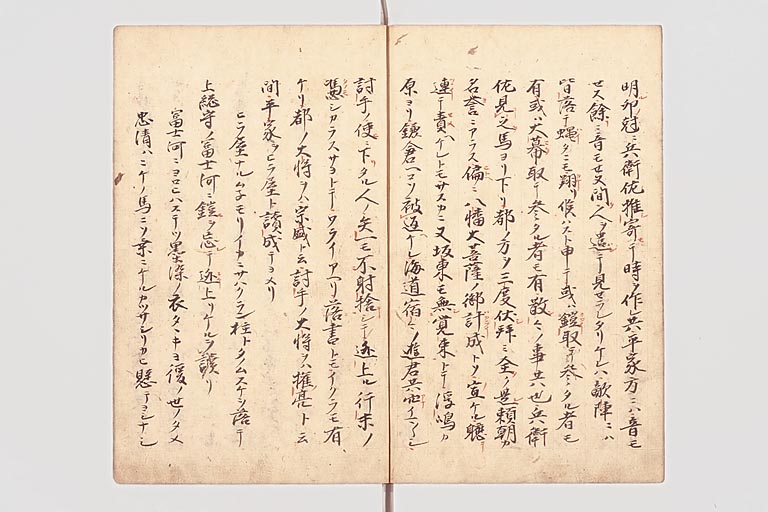 明卯冠ニ兵衛佐推寄テ時ヲ作レ共平家方ニハ音モ
セス餘ニ音モセヌ間人ヲ遣テ見セラレタリケレハ敵陣ニハ
皆落テ蝿タニモ翔リ候ハスト申テ或ハ鎧取テ参タル者モ
有或ハ大幕取テ参タル者モ有散々ノ事共也兵衛
佐見之馬ヨリ下リ都ノ方ヲ三度伏拝ミ全ク是頼朝カ
名誉ニアラス偏ニ八幡大菩薩ノ御計成トソ宣ケル聴
連テ責ヘケレトモサスカニ又坂東モ無覚束トテ浮嶋カ
原ヨリ鎌倉ヘコソ被返ケレ海道宿々ノ遊君共
討手ノ使ニ下タル人ノ矢一モ不射捨シテ逃上ル行末ノ
憑シカラスサヨトテソワライアヘリ落書トモイクラモ有
ケリ都ノ大将ヲハ宗盛ト云討手ノ大将ヲハ権亮ト云
間平家ヲヒラ屋ト讀成テヨメリ
ヒラ屋ナルムネモリイカニサハクラン柱トタノムスケヲ落テ
上総守ノ富士河ニ鎧ヲ忘テ逃上リケルヲ讀リ
冨士河ニヨロヒハステツ墨染ノ衣タヽキヨ後ノ世ノタメ
忠清ハニケノ馬ニソ乗ニケルカツサシリカヒ懸テヨシナシ